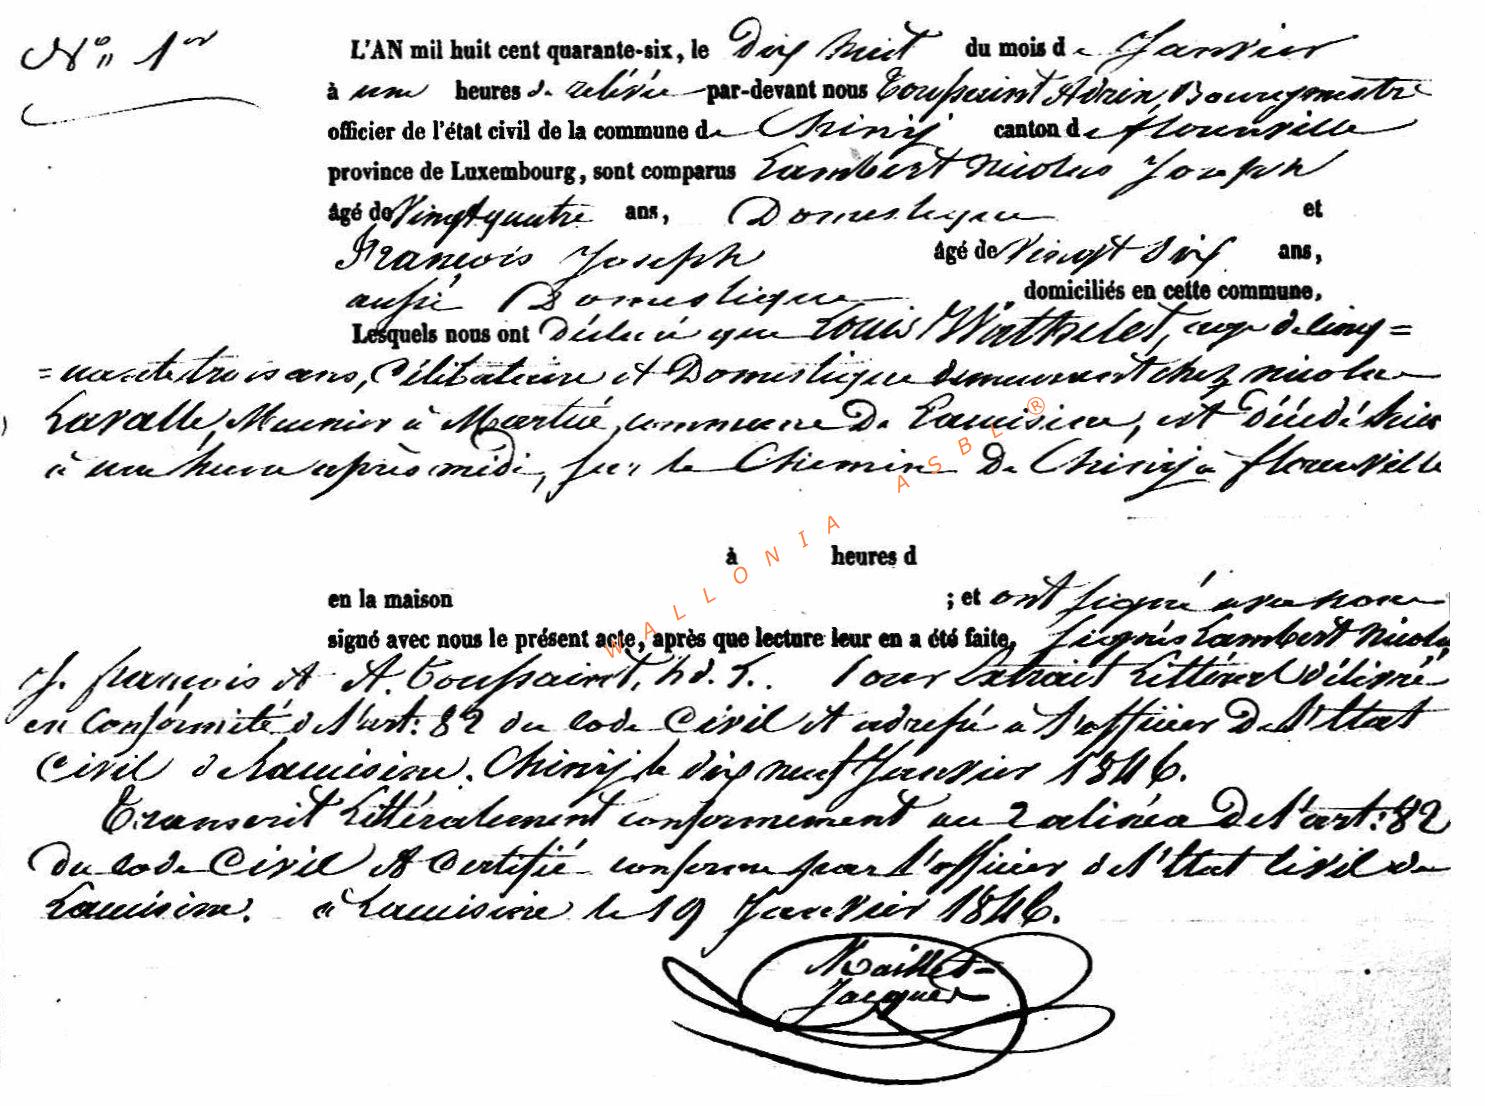 N° 1er
L'AN mil huit cent quarante-six, le Dix huit du mois de Janvier
à une heures de relévée par-devant nous Toussaint Adrien, Bourgmestre
officier de l'état civil de la commune de Chiny canton de florenville
province de Luxembourg, sont comparus Lambert Nicolas Joseph
âgé de Vingt quatre ans, Domestique et
François Joseph âgé de Vingt Six ans,
aussi Domestique domiciliés en cette commune,
Lesquels nous ont déclaré que Louis Wathelet, age de cinq=
=uante trois ans, Célibataire et Domestique demeurant chez nicolas
Lavalle, Meunier à Martué, commune De Lacuisine, est Décédé hier
à une heure après midi, sur le Chemin De Chiny à florenville
à heures d
en la maison ; et ont signé avec nous
signé avec nous le présent acte, après que lecture leur en a été faite, signés Lambert Nicolas
J. françois et A. Toussaint, Pour Extrait Littéral délivré
en Conformité de l'art: 82 du code Civil et adressé à l'officier De l'Etat
Civil de Lacuisine. Chiny, le dix neuf Janvier 1846.
Transcrit Littéralement conformement au 2 alinéa De l'art: 82
du code Civil et Certifié conforme par l'officier de l'Etat Civil de
Lacuisine. à Lacuisine le 19 Janvier 1846.
Maillet=
Jacques
WALLONIA ASBL ®